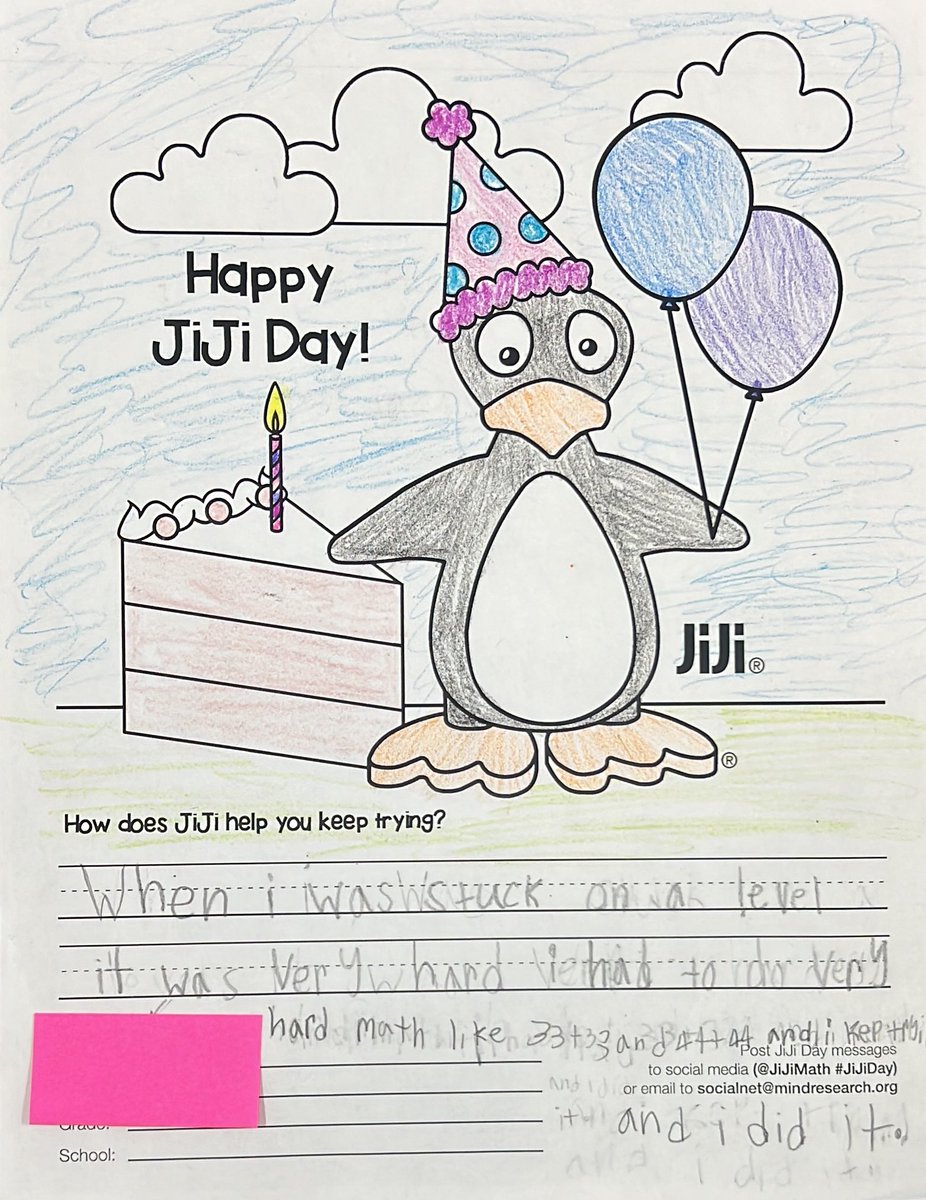 Happy
JiJi Day!
JiJi®
®
How does JiJi help you keep trying?
When i was stuck on a level
it was very hard i had to do very
hard math like 33+33 and 44+44 and i kep
Post JiJi Day messages
to social media (@JiJiMath #JiJiDay)
or email to socialnet@mindresearch.org
and i did it.
Grade:
School: